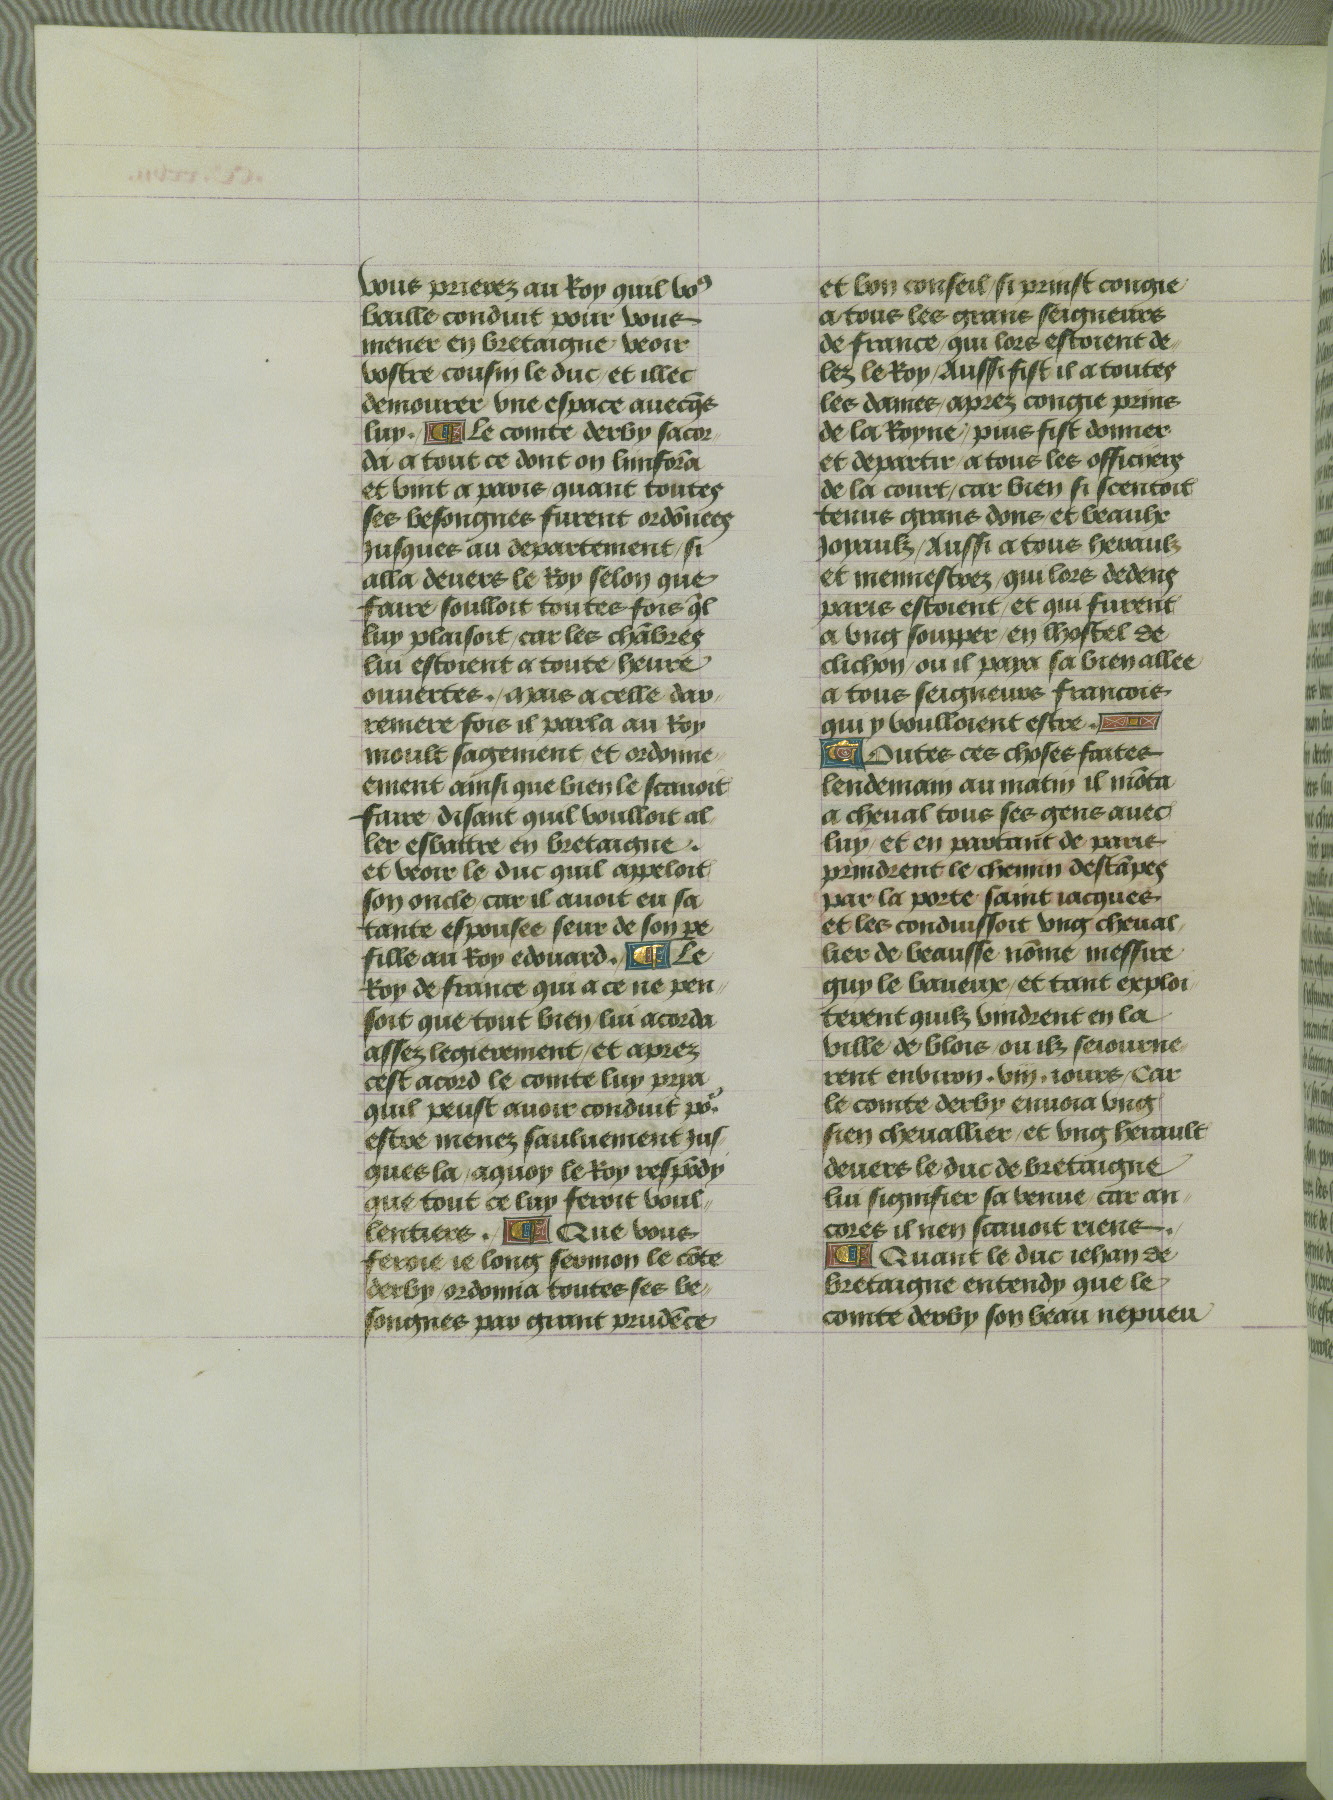 vous prierez au Roy quil vo⁹
baille conduit pour vous
mener en bretaigne veoir
vostre cousin le duc / et illec
demourer vne espace auecq̄s
luy . ¶ Le comte derby sacor„
da a tout ce dont on linfor̄a
et vint a paris / quant toutes
ses besongnes furent ordōnees
jusques au departement / si
alla deuers le Roy selon que
faire soulloit toutes fois q̄l
luy plaisoit / car les chābres
lui estoient a toute heure
ouuertes . / Mais a celle dar„
reniere fois il parla au Roy
moult sagement et ordonne„
ement ainsi que bien le scauoit
faire disant quil voulloit al„
ler esbattre en bretaigne .
et veoir le duc quil appeloit
son oncle car il auoit eu sa
tante espousee seur de son pe
fille au Roy edouard . ¶ Le
Roy de france qui a ce ne pen„
soit que tout bien lui acorda
assez legierement / et aprez
cest acord le comte luy prya
quil peust auoir conduit po᷑
estre menez sauluement jus„
ques la / aquoy le Roy respōdy
que tout ce luy feroit voul„
lentiers . / ¶ Que vous
feroie ie long sermon le cōte
derby / ordonna toutes ses be„
songnes par grant prudēce
et bon conseil / si prinst congie
a tous les grans seigneurs
de france / qui lors estoient de„
lez le Roy / Aussi fist il a toutes
les dames / aprez congie prins
de la Royne / puis fist donner
et departir a tous les officiers
de la court / car bien si scentoit
tenus grans dons / et beaulx
Joyaulz / Aussi a tous heraulz
et menestrez / qui lors dedens
paris estoient / et qui furent
a vng soupper / en lhostel de
clichon / ou il paya sa bien allee
a tous seigneurs francois
qui y voulloient estre .
TOutes ces choses faites
lendemain au matin il mōta
a cheual tous ses gens auec
luy / et en partant de paris
prindrent le chemin destāpes
par la porte saint iacques
et les conduissoit vng cheual„
lier de beausse nōme messire
guy le baueux / et tant exploi„
terent quilz vindrent en la
ville de blois / ou ilz seiourne„
rent enuiron . viij . iours / Car
le comte derby enuoia vng
sien cheuallier / et vng herault
deuers le duc de bretaigne
lui signifier sa venue car an„
cores il nen scauoit riens .
¶ Quant le duc iehan de
bretaigne entendy que le
comte derby son beau nepueu